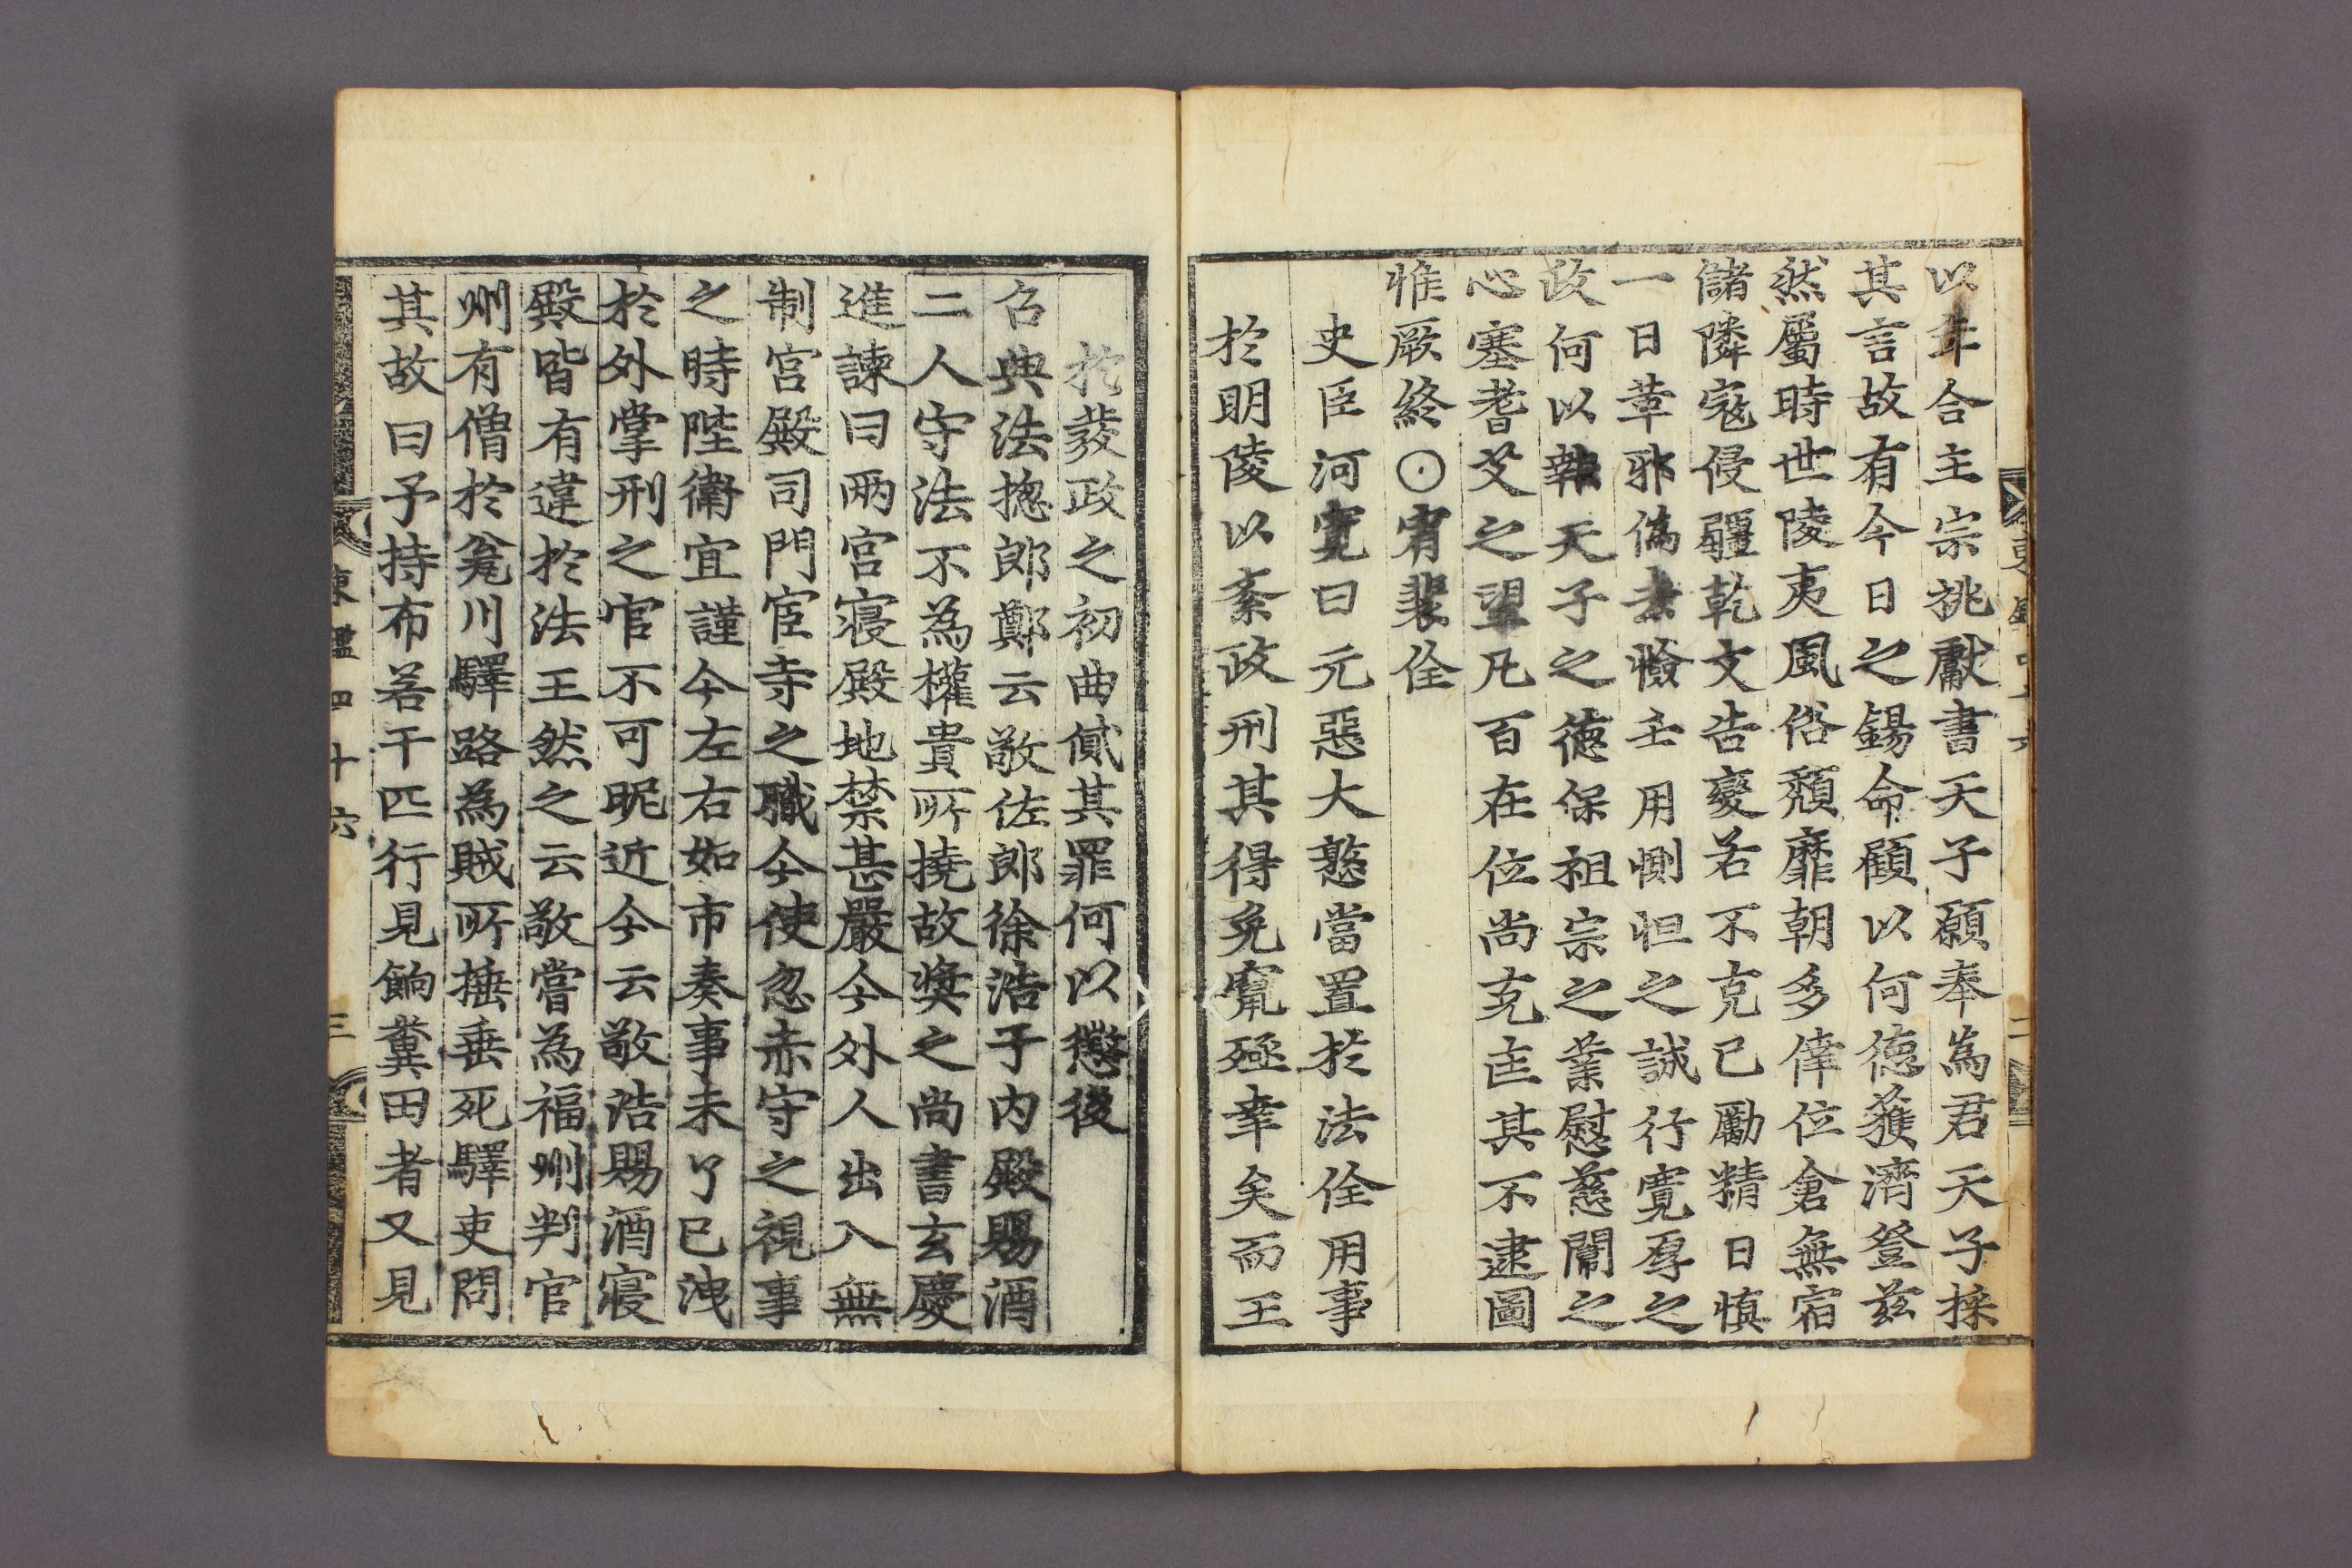 以年合主宗祧獻書天子願奉為君天子採
其言故有今日之錫命顧以何德獲濟登玆
然屬時世陵夷風俗頹靡朝多倖位倉無宿
儲隣寇侵疆乾文告變若不克已勵精日慎
一日革邪偽去憸壬用惻怛之誠行寬厚之
政何以報天子之德保祖宗之業慰慈闈之
心塞耆艾之望凡百在位尚克匡其不逮圖
惟厥終〇宥裴佺
史臣河寬曰元惡大憝當置於法佺用事
於明陵以紊政刑其得免竄殛幸矣而王
於發政之初曲貸其罪何以懲後
召典法摠郎鄭云敬佐郎徐浩于内殿賜酒
二人守法不為權貴所撓故奬之尚書玄慶
進諫曰兩宮寢殿地禁甚嚴今外人出入無
制宮殿司門宦寺之職今使忽赤守之視事
之時陛衛宜謹今左右如市奏事未了已洩
於外掌刑之官不可昵近今云敬浩賜酒寢
殿皆有違於法王然之云敬嘗為福州判官
州有僧於瓮川驛路為賊所捶垂死驛吏問
其故曰予持布若干匹行見餉糞田者又見
東鑑四十六
三
二